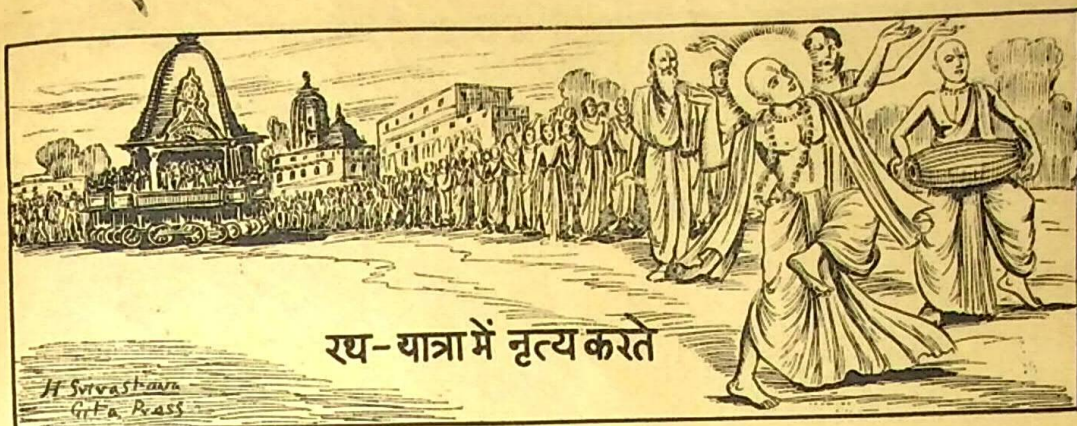 रथ-यात्रा में नृत्य करते
H Srivastava
Gita Press